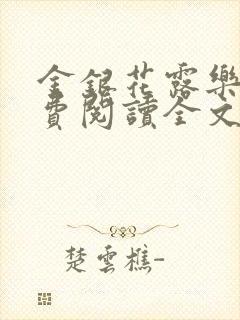 金銀花露樂
費閱讀全文
楚雲樵-